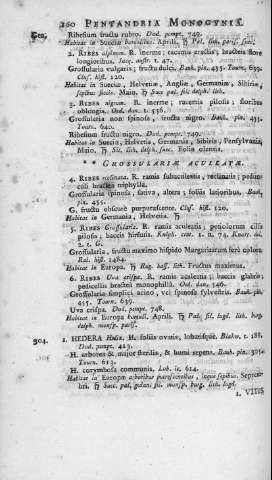 260 PENTANDRIA MONOGYNIA.
Ribesium fructu rubro. Dod. pempt. 749.
Habitat in Sueciæ borealibus. Aprili. ♄ Pal. lith. parif. suec.
2. RIBES alpinum. R. inerme; racemis erectis; bracteis flore
longioribus. Jacq. austr. t. 47.
Grossularia vulgaris; fructu dulci. Bauh. pin. 455. Tourn. 639.
Clus. hist. 120.
Habitat in Sueciæ, Helvetiæ, Angliæ, Germaniæ, Sibiriæ,
sepibus siccis. Majo. ♄
3. RIBES nigrum. R. inerme; racemis pilosis; floribus
oblongis. Oed. dan. t. 556.
Grossularia non spinosa, fructu nigro. Bauh. pin. 455.
Tourn. 640.
Ribesium fructu nigro. Dod. pempt. 749.
Habitat in Suecia, Helvetia, Germania, Sibiria, Pensylvania,
Majo. ♄ Sil. lith. delph. suec. Folia olentia.
* * GROSSULARIÆ ACULEATÆ.
4. RIBES reclinata. R. ramis subaculeatis, reclinatis; pedun-
culi bractea triphylla.
Grossularia spinosa, sativa, altera; foliis latioribus. Bauh.
pin. 455.
G. fructu obscure purpurascente. Clus. hist. 120.
Habitat in Germania, Helvetia. ♄
5. RIBES Grossularia. R. ramis aculeatis; petiolorum ciliis
pilosis; baccis hirsutis. Kniph. cent. 1. n. 74. Knorr. del.
2. t. G.
Grossularia, fructu maximo hispido Margaritarum fere colore.
Rai. hist. 1484.
Habitat in Europa. ♄ Rag. hass. lith. Fructus maximus.
6. RIBES Uva crispa. R. ramis aculeatis; baccis glabris;
pedicellis bractea monophylla. Oed. dan. 546.
Grossularia simplici acino, vel spinosa sylvestris. Bauh. pin.
455. Tourn. 639.
Uva crispa. Dod. pempt. 748.
Habitat in Europa boreali. Aprili. ♄ Pal. sil. lugd. lith. burg.
delph. monsp. paris.
304. 1. HEDERA Helix. H. foliis ovatis, lobatisque. Blakw. t. 188.
Dod. pempt. 413.
H. arborea & major sterilis, & humi repens. Bauh. pin. 305.
Tourn. 612.
H. corymbosa communis. Lob. ic. 614.
Habitat in Europæ arboribus putrescentibus, inque sepibus. Septem-
bri. ♄ Sacc. pal. golan. sil. monsp. burg. lith. lugd.
1. VITIS